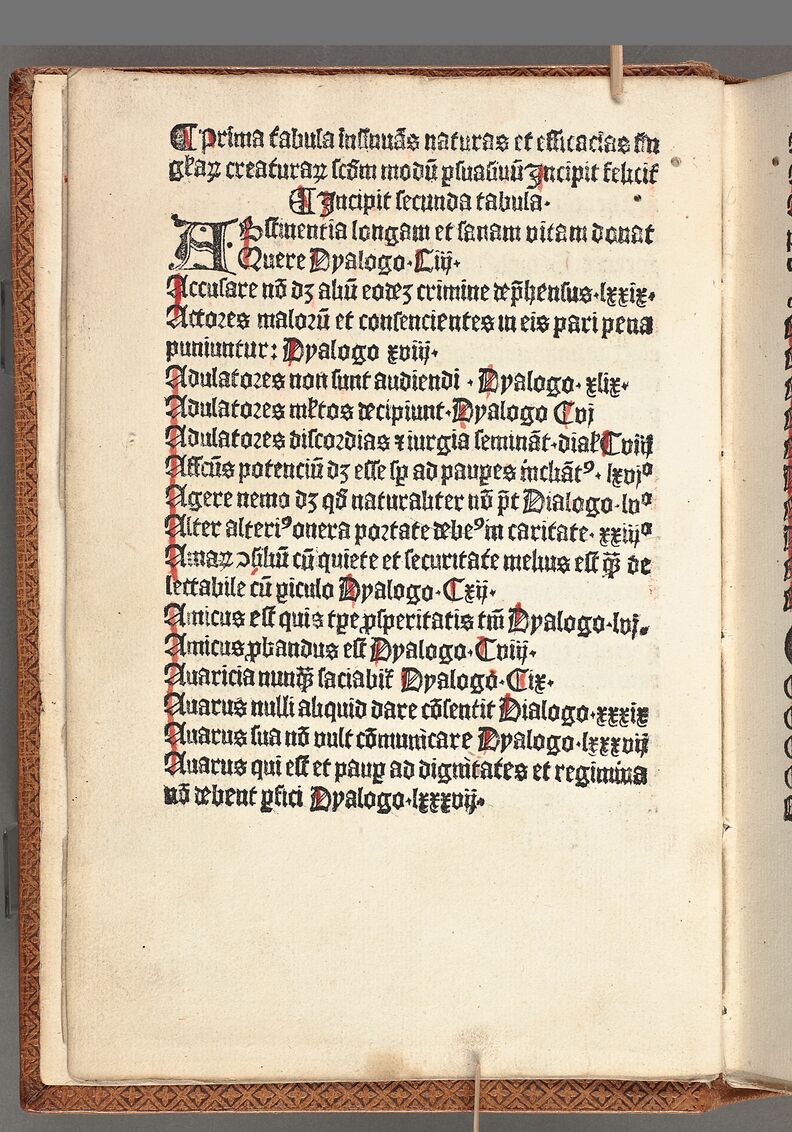 ¶ Prima tabula insinuãs naturas et efficacias sin
gl̃aꝝ creaturaꝝ scďm modũ ꝑsuasiuũ Incipit felicit̃
¶ Incipit secunda tabula.
Abstinentia longam et sanam vitam donat
Quere Dyalogo.Ciij.
Accusare nõ dꝫ aliũ eodeꝫ crimine dep̃hensus.lxxix.
Actores maloꝛũ et consencientes in eis pari pena
puniuntur: Dyalogo xviij.
Adulatores non sunt audiendi . Dyalogo. xlix.
Adulatoꝛes ml̃tos decipiunt.Dyalogo Cvj
Adulatoꝛes discordias ⁊ iurgia seminãt.dial̃ Cviij
Affcũs potenciũ dꝫ esse sꝑ ad pauꝑes inclinãtꝰ. lxvjº
Agere nemo dꝫ qď naturaliter nõ p̃t Dialogo.lvº
Alter alteriꝰ onera poꝛtate debeꝰ in caritate. xxiijº
Amaꝝ ↄsiliũ cũ quiete et securitate melius est q̃ꝫ de
lectabile cũ ꝑiculo Dyalogo.Cxij.
Amicus est quis tꝑe ꝓsperitatis tm̃ Dyalogo.lvj.
Amicus ꝓbandus est Dyalogo.Cviij.
Auaricia nunq̃ꝫ saciabit̃ Dyalogo.Cix.
Auarus nulli aliquid dare cõsentit Dialogo.xxxix
Auarus sua nõ vult cõmunicare Dyalogo.lxxxvij
Auarus qui est et pauꝑ ad dignitates et regimina
nõ debent ꝑfici Dyalogo.lxxxvij.